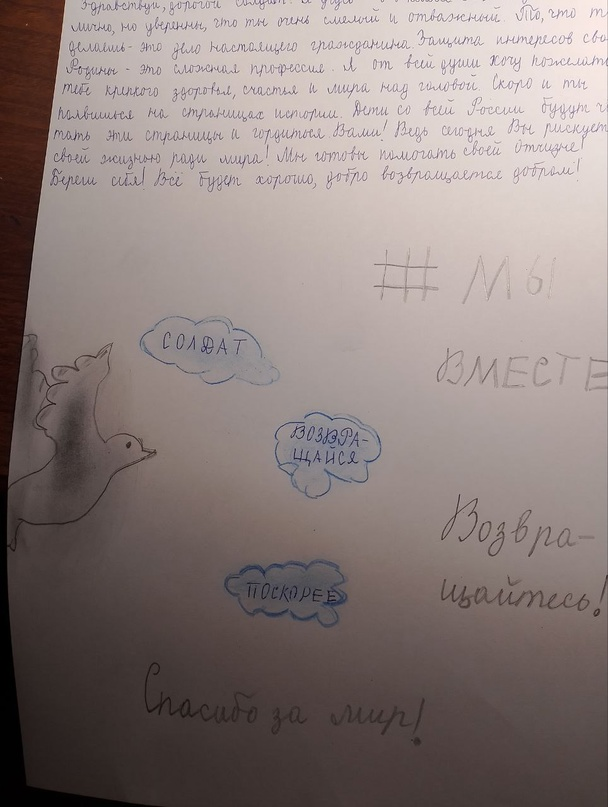 Здравствуй, дорогой солдат! Я
лично, но уверенны, что ты очень смелый и отважный. То, что т
делаешь - это дело настоящего гражданина. Защита интересов сво
Родины - это сложная профессия. Я от всей души хочу пожелать
тебе крепкого здоровья, счастья и мира над головой. Скоро и ты
появишься на страницах истории. Дети со всей России будут чи
тать эти страницы и гордиться Вами! Ведь сегодня Вы рискует
своей жизнью ради мира! Мы готовы помогать своей Отчизне!
Береги себя! Всё будет хорошо, добро возвращается добром!
# МЫ
ВМЕСТЕ
СОЛДАТ
ВОЗВРА-
ЩАЙСЯ
ПОСКОРЕЕ
Возвра-
щайтесь!
Спасибо за мир!